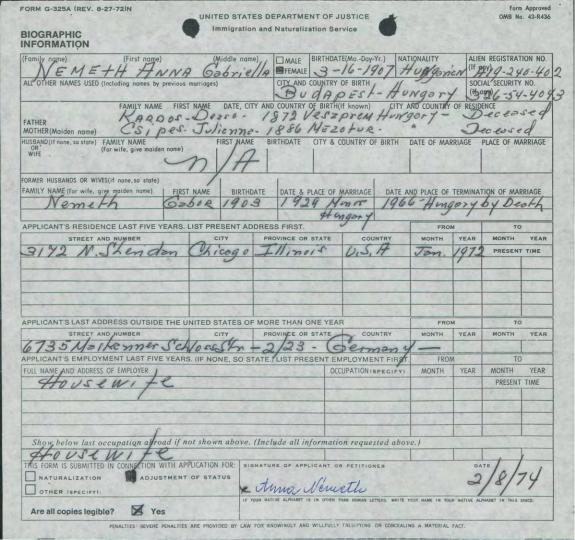 FORM G-325A (REV. 8-27-72)N
UNITED STATES DEPARTMENT OF JUSTICE
Form Approved
OMB No. 43-R436
Immigration and Naturalization Service
BIOGRAPHIC
INFORMATION
(Family name) (First name) (Middle name) MALE FEMALE BIRTHDATE(Mo.-Day-Yr.) NATIONALITY ALIEN REGISTRATION NO. (If any)
NEMETH ANNA Gabriella 3-16-1907 Hungarian A19-240-402
ALL OTHER NAMES USED (Including names by previous marriages) CITY AND COUNTRY OF BIRTH SOCIAL SECURITY NO. (If any)
BUDAPEST-Hungary 336-54-4093
FAMILY NAME FIRST NAME DATE, CITY AND COUNTRY OF BIRTH(If known) CITY AND COUNTRY OF RESIDENCE
FATHER KARDOS- 1872 Veszprem Hungary- Deceased
MOTHER(Maiden name) Csipes- Julienne- 1886 Mezotur- " Deceased
HUSBAND(If none, so state) OR WIFE FAMILY NAME (For wife, give maiden name) FIRST NAME BIRTHDATE CITY & COUNTRY OF BIRTH DATE OF MARRIAGE PLACE OF MARRIAGE
n/A
FORMER HUSBANDS OR WIVES(If none, so state)
FAMILY NAME (For wife, give maiden name) FIRST NAME BIRTHDATE DATE & PLACE OF MARRIAGE DATE AND PLACE OF TERMINATION OF MARRIAGE
Nemeth Gabor 1903 1929 Hungary 1966-Hungary by Death
APPLICANT'S RESIDENCE LAST FIVE YEARS. LIST PRESENT ADDRESS FIRST. FROM TO
STREET AND NUMBER CITY PROVINCE OR STATE COUNTRY MONTH YEAR MONTH YEAR
3172 N. Sheridan Chicago Illinois U.S.A Jan. 1972 PRESENT TIME
APPLICANT'S LAST ADDRESS OUTSIDE THE UNITED STATES OF MORE THAN ONE YEAR FROM TO
STREET AND NUMBER CITY PROVINCE OR STATE COUNTRY MONTH YEAR MONTH YEAR
6735 Str-2/23- Germany-
APPLICANT'S EMPLOYMENT LAST FIVE YEARS. (IF NONE, SO STATE.) LIST PRESENT EMPLOYMENT FIRST FROM TO
FULL NAME AND ADDRESS OF EMPLOYER OCCUPATION(SPECIFY) MONTH YEAR MONTH YEAR
Housewife PRESENT TIME
Show below last occupation abroad if not shown above. (Include all information requested above.)
Housewife
THIS FORM IS SUBMITTED IN CONNECTION WITH APPLICATION FOR: SIGNATURE OF APPLICANT OR PETITIONER DATE
NATURALIZATION ADJUSTMENT OF STATUS
OTHER (SPECIFY):
x Anna Nemeth 2/8/74
IF YOUR NATIVE ALPHABET IS IN OTHER THAN ROMAN LETTERS, WRITE YOUR NAME IN YOUR NATIVE ALPHABET IN THIS SPACE:
Are all copies legible? Yes
PENALTIES: SEVERE PENALTIES ARE PROVIDED BY LAW FOR KNOWINGLY AND WILLFULLY FALSIFYING OR CONCEALING A MATERIAL FACT.